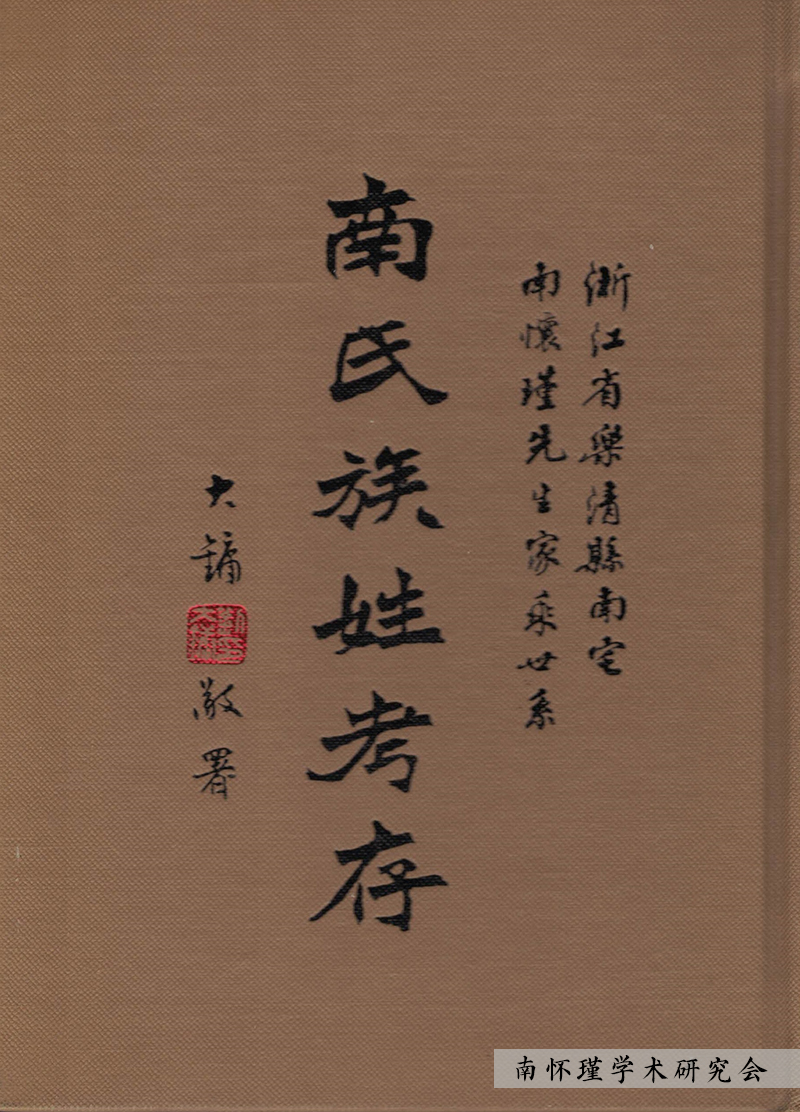 浙江省樂清縣南宅
南懷瑾先生家乘世系
南氏族姓考存
大鏞
敬署
南怀瑾学术研究会